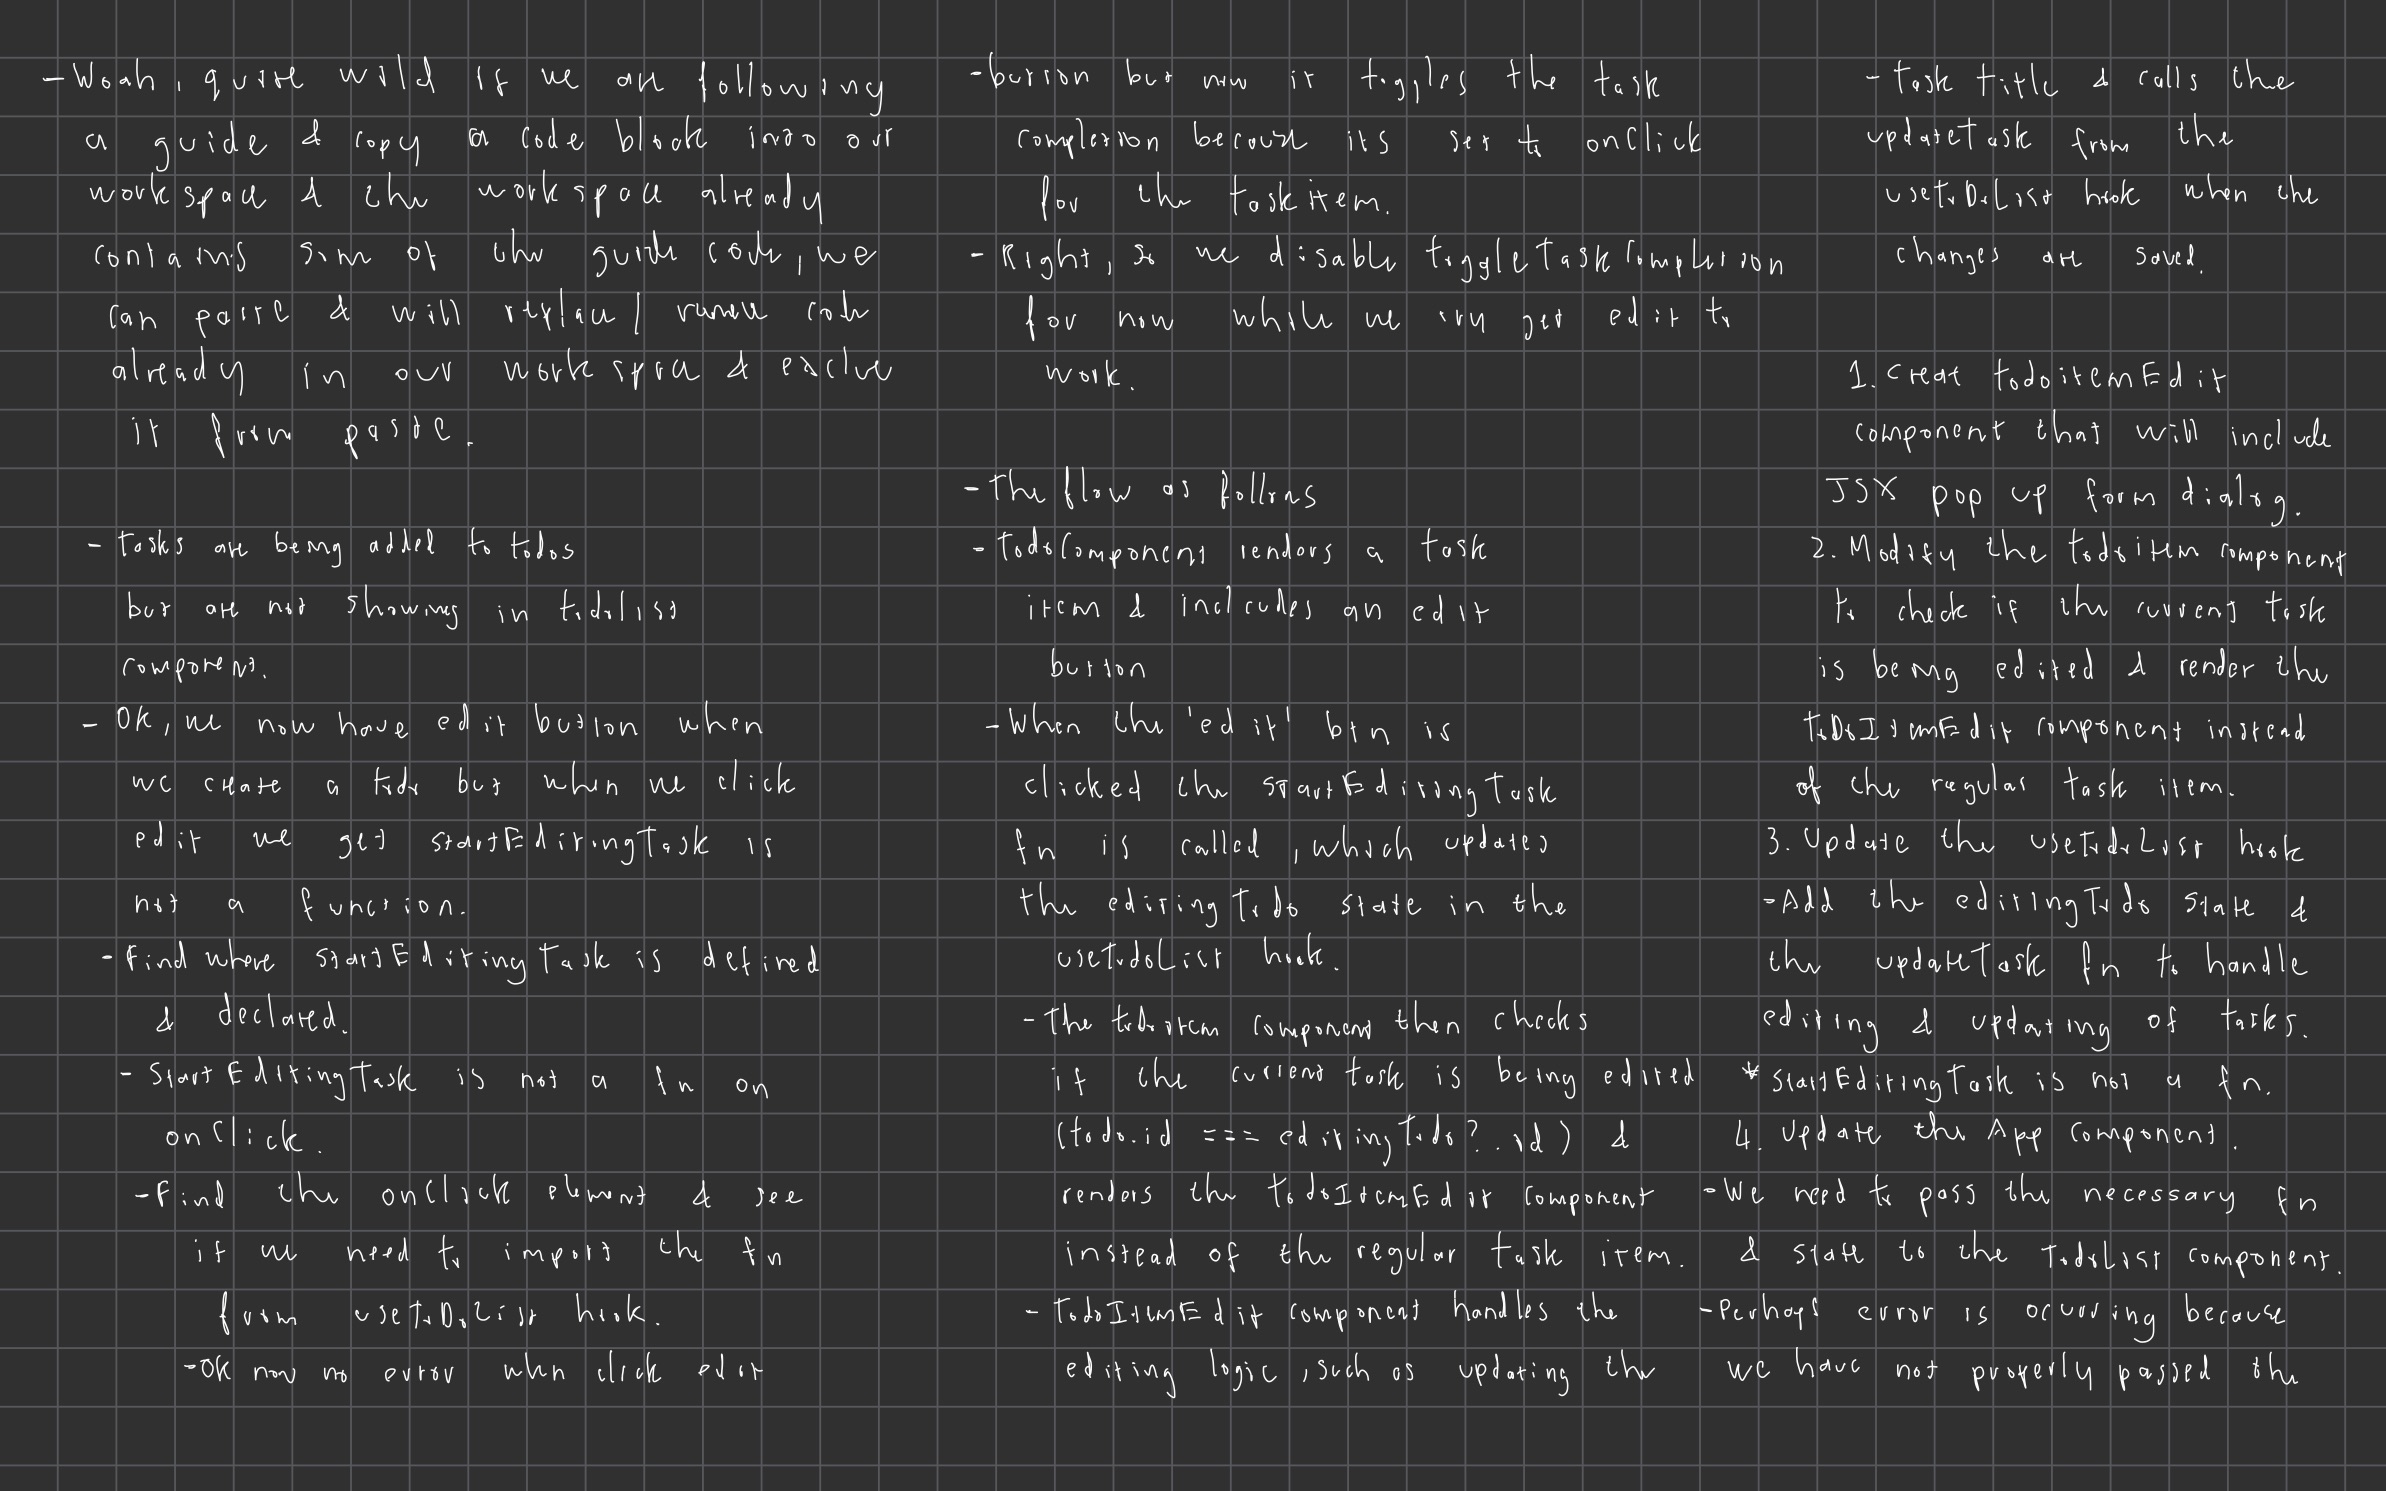 - Woah, quite wild if we are following
a guide & copy a code block into our
workspace & the workspace already
contains some of the guide code, we
can paste & will replace / remove code
already in our workspace & exclue
it from paste.
- Tasks are being added to todos
but are not showing in todolist
component.
- Ok, we now have edit button when
we create a todo but when we click
edit we get startEditingTask is
not a function.
- Find where startEditingTask is defined
& declared.
- StartEditingTask is not a fn on
onClick.
- Find the onClick element & see
if we need to import the fn
from useToDoList hook.
- Ok now no error when click edit
- button but now it toggles the task
completion because its set to onClick
for the taskitem.
- Right, so we disable toggleTaskCompletion
for now while we try get edit to
work.
- The flow as follows
- TodoComponent renders a task
item & includes an edit
button
- When the 'edit' btn is
clicked the startEditingTask
fn is called, which updates
the editingTodo state in the
useTodoList hook.
- The todoitem component then checks
if the current task is being edited
(todo.id === editingTodo?.id) &
renders the todoItemEdit component
instead of the regular task item.
- TodoItemEdit component handles the
editing logic, such as updating the
- Task title & calls the
updateTask from the
useToDoList hook when the
changes are saved.
1. Creat todoitemEdit
component that will include
JSX pop up form dialog.
2. Modify the todoitem component
to check if the current task
is being edited & render the
ToDoItemEdit component instead
of the regular task item.
3. Update the useTodoList hook
- Add the editingTodo state &
the updateTask fn to handle
editing & updating of tasks.
* StartEditingTask is not a fn.
4. Update the App component.
- We need to pass the necessary fn
& state to the TodoList component.
- Perhaps error is ocurring because
we have not properly passed the